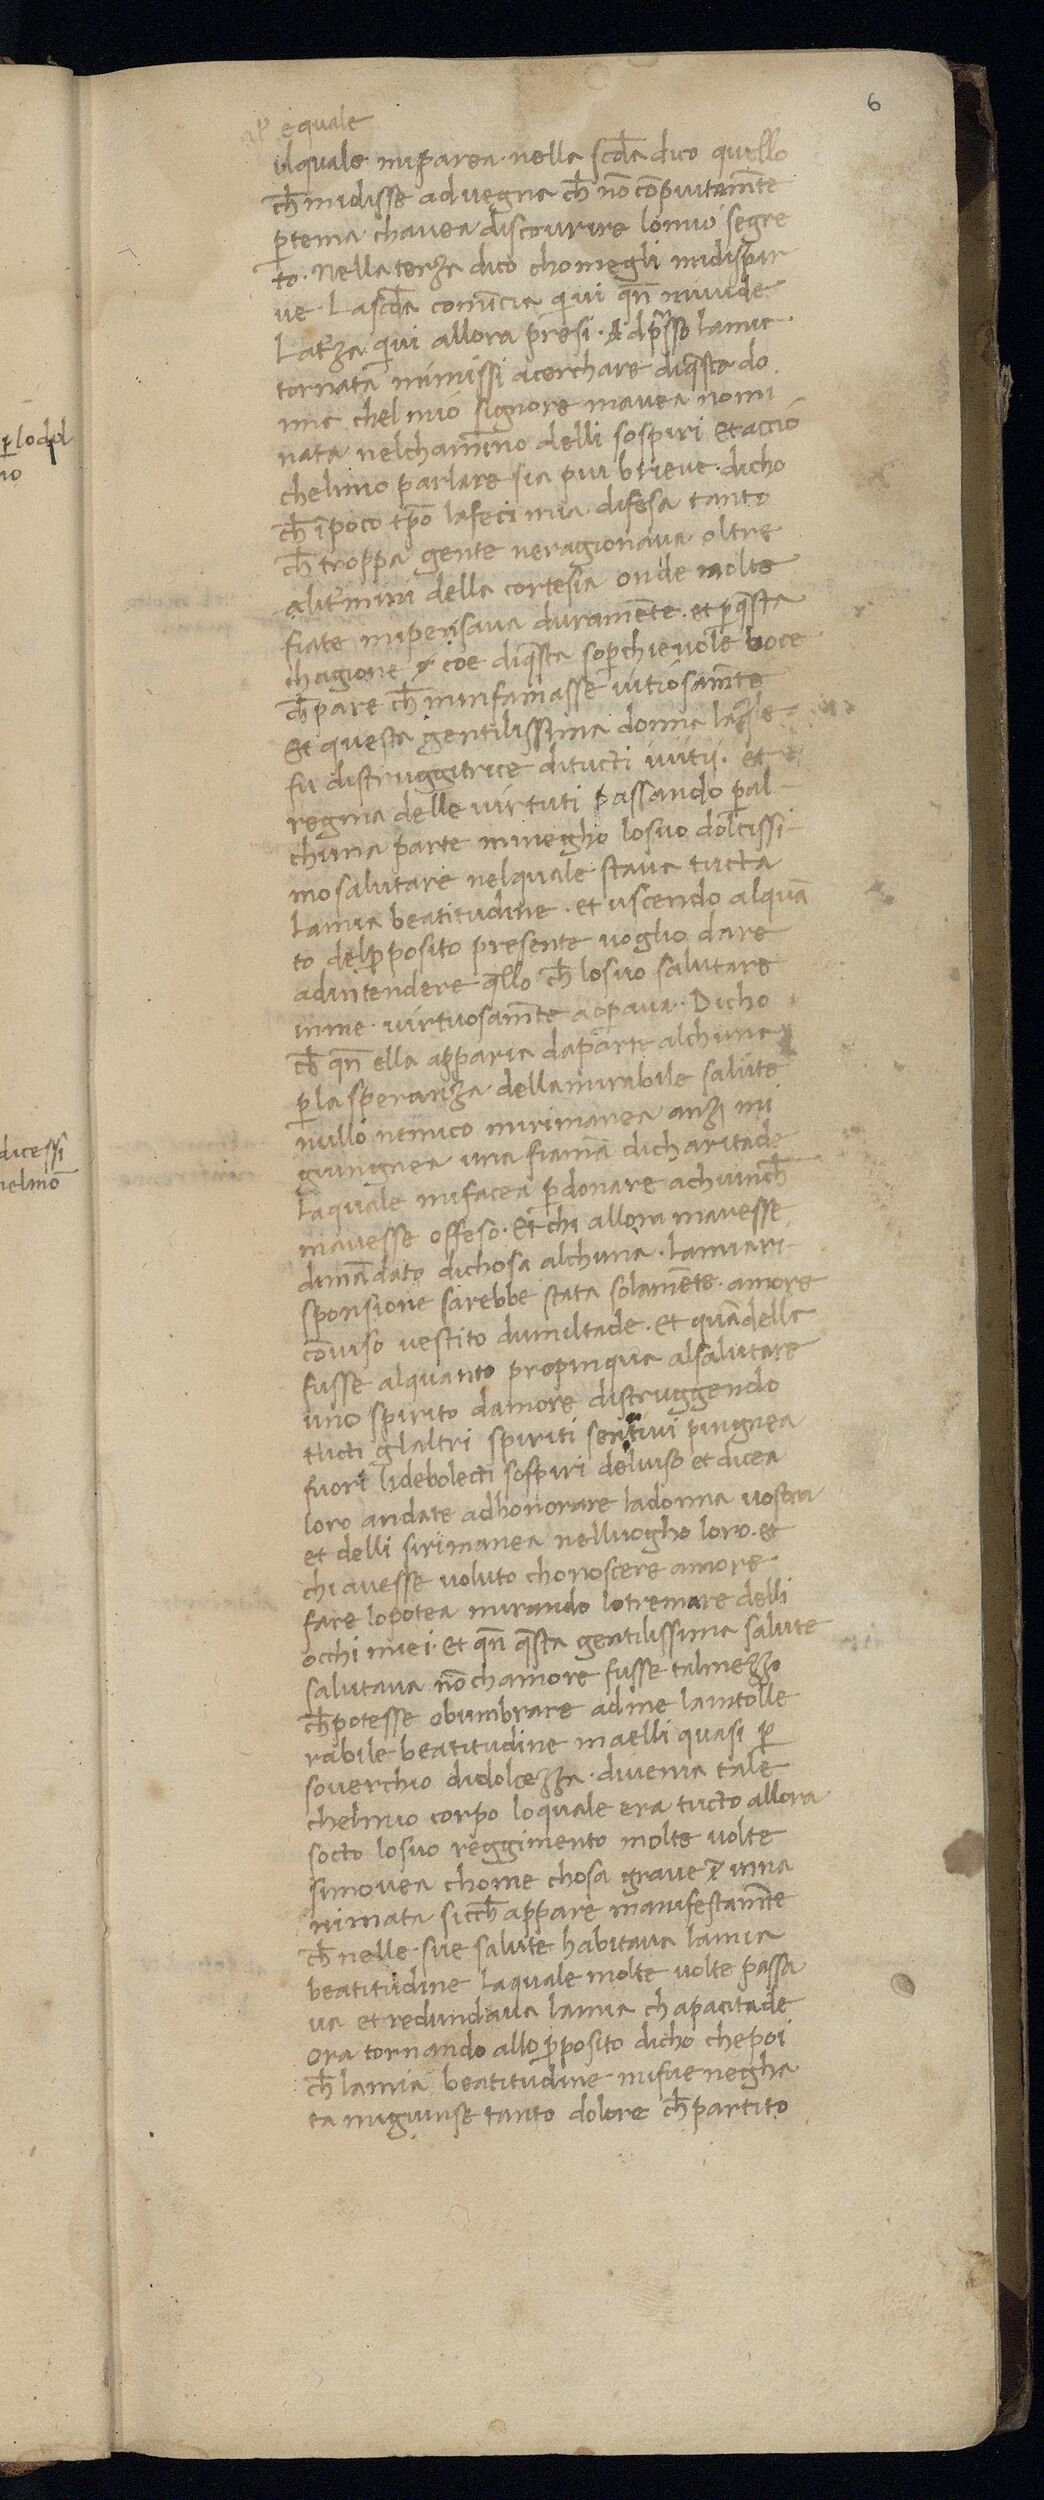 6
equale
ilquale miparea nella scd̄a dico quello
ch̄ midisse advegna ch̄ nō cōpiutamēte
ꝑtema chavea discovrire lomio segre
to. Nella terza dico chomegli midispar
ve. Lascd̄a comīcia quivi qn̄ mivide
Latʒa quivi allora presi. Adpresso lamia
tornata mimissi acerchare diqsta do
nna chel mio signore mavea nomi
nata nelchamino delli sospiri Et acciò
chelmio parlare sia piu brieve. dicho
ch̄ ī poco tp̄o lafeci mia difesa tanto
ch̄ troppa gente neragionava oltre
alitmini della cortesia onde molte
fiate mipensava duramēte. et ꝑ qsta
chagione coe diqsta soꝑchievole boce
ch̄ pare ch̄ minfamasse vitiosamēte
Et questa gentilissima donna laqle
fu distruggitrice ditucti ivitij. et
regina delle virtuti passando ꝑal-
chuna parte minegho losuo dolcissi-
mo salutare nelquale stava tucta
lamia beatitudine. et uscendo alquā
to delꝓposito presente voglio dare
adintendere qllo ch̄ losuo salutare
inme. virtuosamēte aoꝑava. Dicho
ch̄ qn̄ ella apparia daparte alchuna
ꝑla speranza dellamirabile salute
nullo nemico mirimanea anzi mi
giungnea una fiāma dicharitade
laquale mifacea ꝑdonare achiunch̄
mavesse offeso. Et chi allora mavesse
dimādato dichosa alchuna. lamiari-
sponsione sarebbe stata solamēte. amore
cōviso vestito dumiltade. Et quādella
fusse alquanto propinqua alsalutare
uno spirito damore distruggendo
tucti glaltri spiriti sensitivi pingnea
fuori lidebolecti sospiri delviso et dicea
loro andate adhonorare ladonna vostra
et delli sirimanea nelluogho loro. et
chi avesse voluto chonoscere amore
fare lopotea mirando lotremare delli
occhi miei. Et qn̄ qsta gentilissima salute
salutava nō chamore fusse talmezzo
ch̄ potesse obumbrare adme lamtolle
rabile beatitudine maelli quasi ꝑ
soverchio didolcezza. divenia tale
chelmio corpo loquale era tucto allora
socto losuo reggimento molte volte
simovea chome chosa grave inna
nimata sicch̄ appare manifestamēte
ch̄ nelle sue salute habitava lamia
beatitudine laquale molte volte passa
va et redundava lamia chapacitade
Ora tornando alloꝓposito dicho chepoi
ch̄ lamia beatitudine mifue negha
ta migiunse tanto dolore ch̄ partito
dicessi